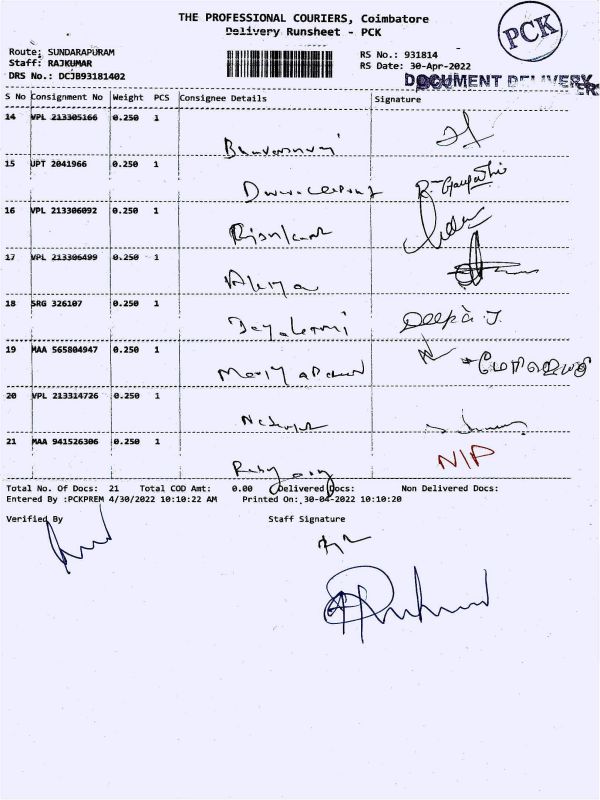 THE PROFESSIONAL COURIERS, Coimbatore
Delivery Runsheet - PCK
PCK
Route: SUNDARAPURAM
Staff: RAJKUMAR
DRS No.: DCJB93181402
RS No.: 931814
RS Date: 30-Apr-2022
DOCUMENT DELIVERY
S No Consignment No Weight PCS Consignee Details Signature
14 VPL 213305166 0.250 1
15 UPT 2041966 0.250 1
R. Ganpathi
16 VPL 213306092 0.250 1
17 VPL 213306499 0.250 1
18 SRG 326107 0.250 1
Deepa J.
19 MAA 565804947 0.250 1
20 VPL 213314726 0.250 1
21 MAA 941526306 0.250 1
N/P
Total No. Of Docs: 21 Total COD Amt: 0.00 Delivered Docs: Non Delivered Docs:
Entered By :PCKPREM 4/30/2022 10:10:22 AM Printed On: 30-04-2022 10:10:20
Verified By Staff Signature